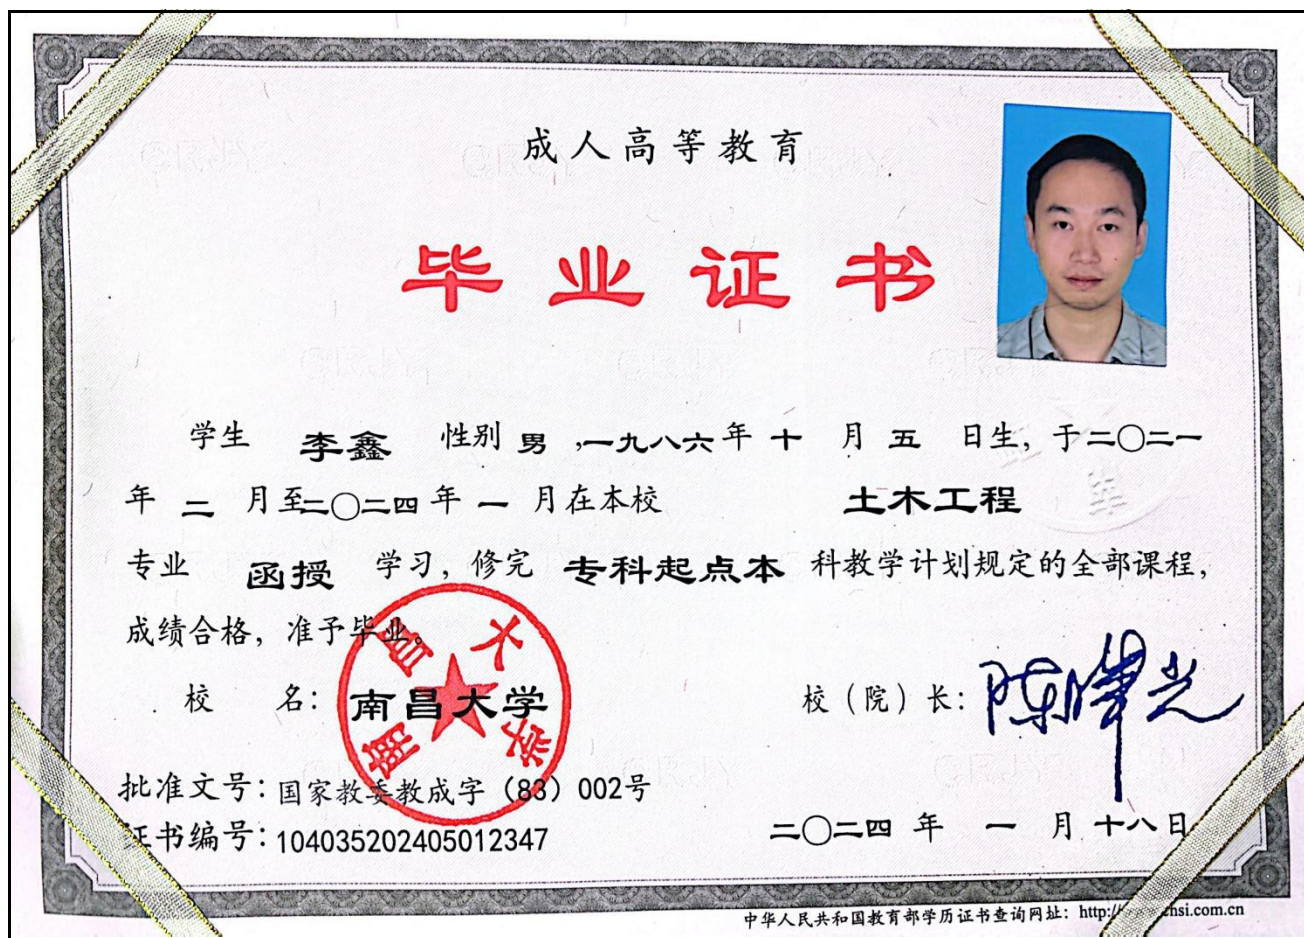 成人高等教育
毕业证书
学生 李鑫 性别 男 ,一九八六年 十 月 五 日生，于二〇二一
年 二 月至二〇二四 年 一 月在本校 土木工程
专业 函授 学习，修完 专科起点本 科教学计划规定的全部课程，
成绩合格，准予毕业。
校 名：南昌大学
南昌大学
校（院）长：
批准文号：国家教委教成字（83）002号
证书编号：104035202405012347
二〇二四 年 一 月 十八日
中华人民共和国教育部学历证书查询网址：